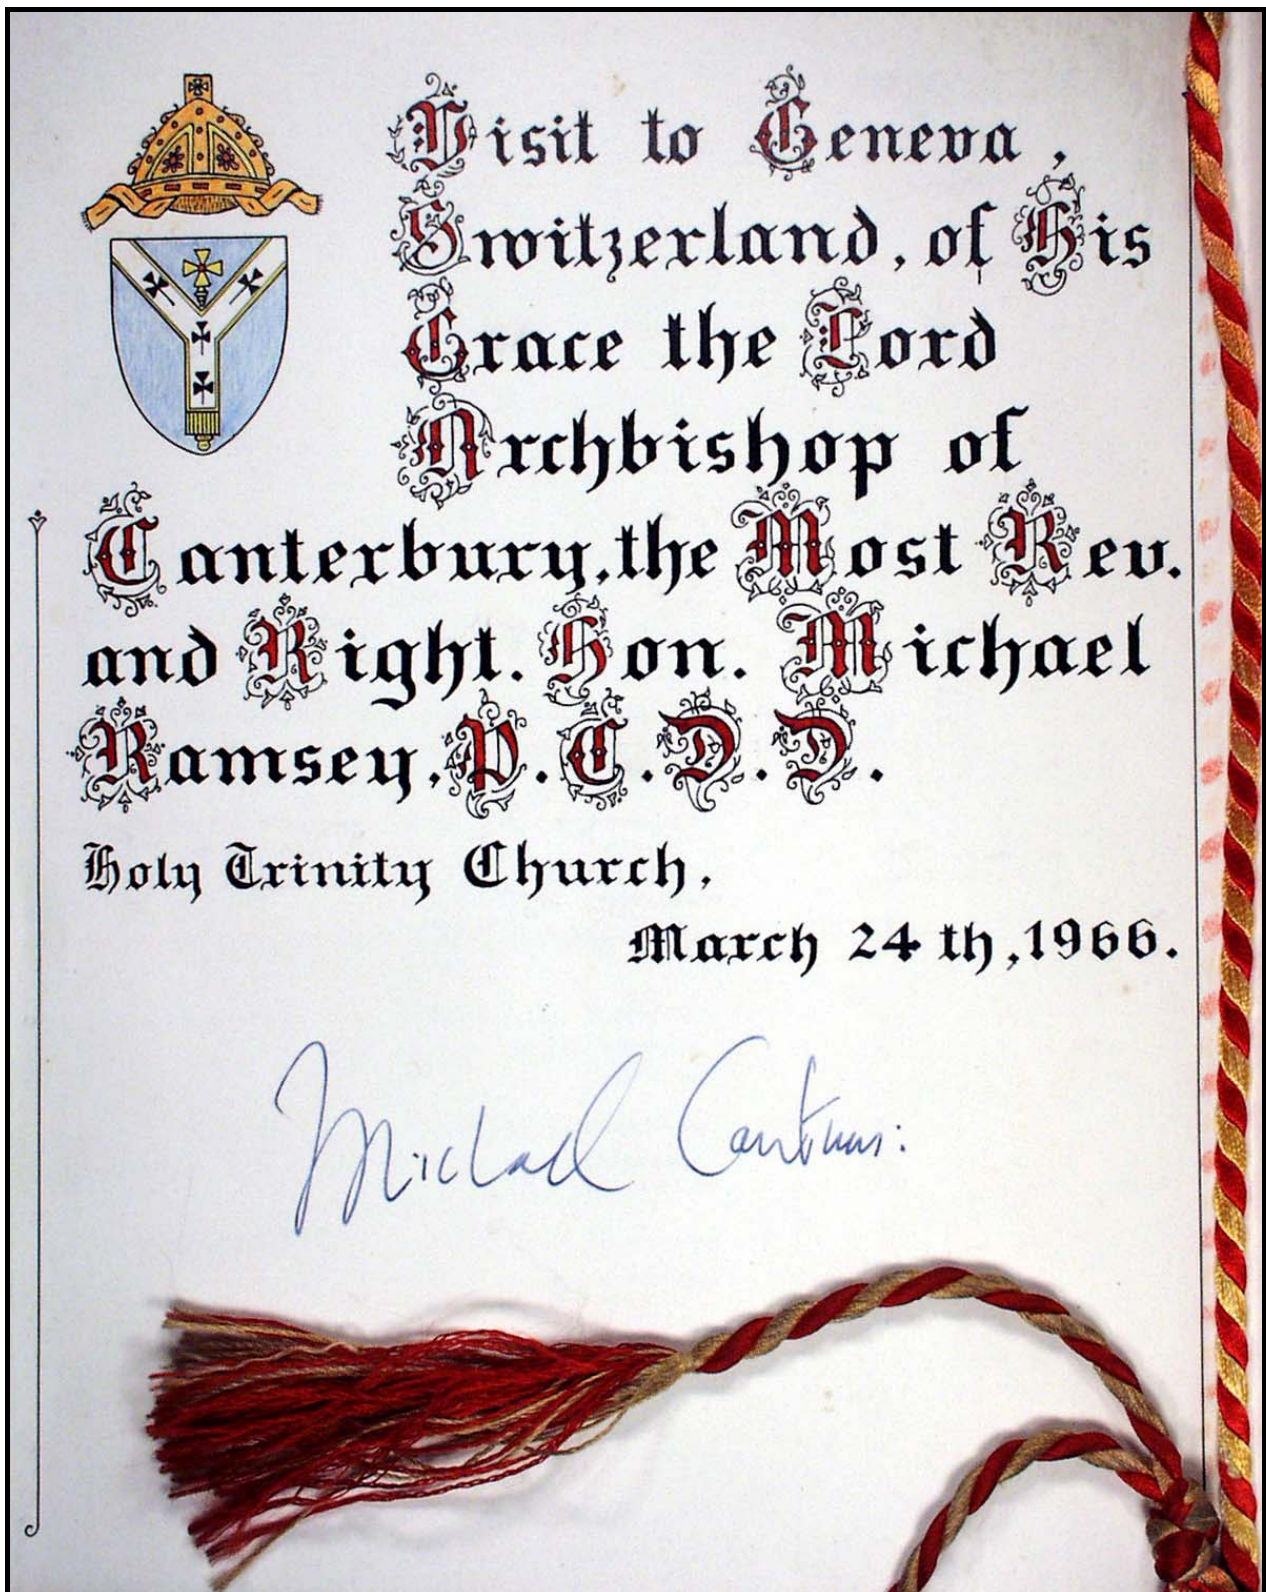 Visit to Geneva,
Switzerland, of His
Grace the Lord
Archbishop of
Canterbury, the Most Rev.
and Right. Hon. Michael
Ramsey, P.C.D.D.
Holy Trinity Church,
March 24th, 1966.
Michael Cantuar: